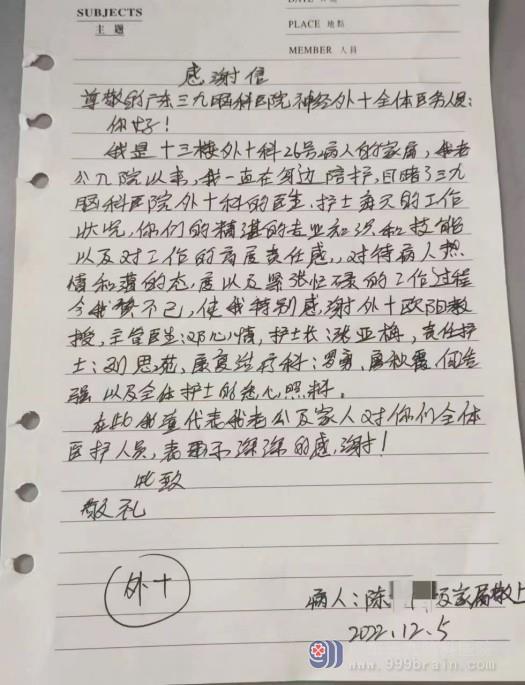 SUBJECTS
主 題
PLACE 地點
MEMBER 人員
感谢信
尊敬的广东三九脑科医院神经外十全体医务人员:
你好!
我是十三楼外十科26号病人的家属,我老
公入院以来,我一直在身边陪护,目睹了三九
脑科医院外十科的医生、护士每天的工作
状况,你们的精湛的专业知识和技能
以及对工作的高度责任感,对待病人热
情和蔼的态度以及紧张忙碌的工作过程
令我赞不已,使我特别感谢外十欧阳教
授,主管医生:邓心情,护士长:张亚梅,责任护
士:刘思苑,康复治疗科:罗勇、廖秋霞、何浩
强以及全体护士的悉心照料。
在此我谨代表我老公及家人对你们全体
医护人员,表示深深的感谢!
此致
敬礼
外十
病人:陈 及家属敬上
2022.12.5
www.999brain.com